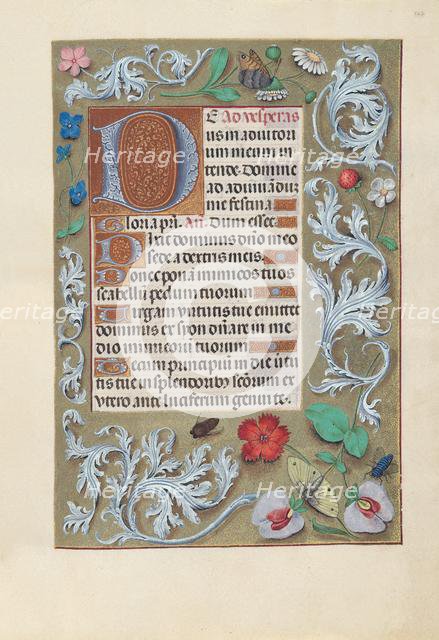 E Ad vesperas
us in adiutor
ium meum in
tende. Domine
ad adiuvādū
me festina
Gloria pri. Añ. Dum esset
Dixit dominus dño meo
sede a dextris meis.
Donec ponā inimicos tuos
scabellū pedum tuorum
Virgam virtutis tue emittet
dominus ex sion dñare in me
dio inimicorū tuorum
Tecum principiū in die iutu
tis tue in splendorib scorum ex
utero ante luciferum genui te.
Heritage
Heritage
Heritage
Heritage
Heritage
Heritage
Heritage
Heritage